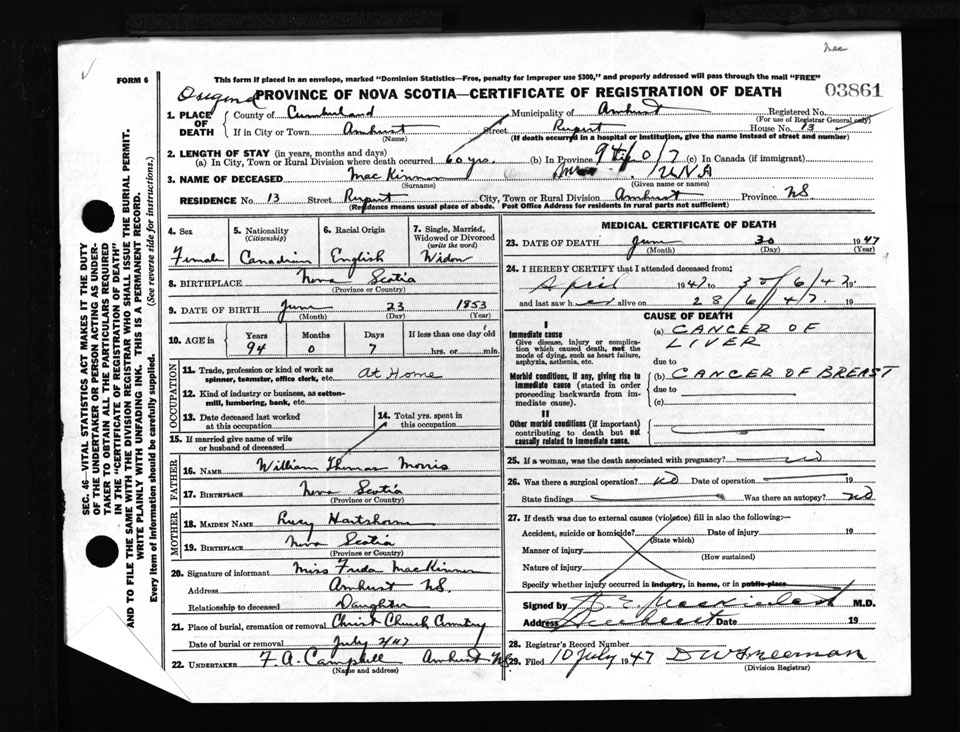 nec
FORM 6
This form if placed in an envelope, marked "Dominion Statistics—Free, penalty for improper use $300," and properly addressed will pass through the mail "FREE"
PROVINCE OF NOVA SCOTIA—CERTIFICATE OF REGISTRATION OF DEATH
03861
1. PLACE OF DEATH
County of Cumberland Municipality of Amherst Registered No.
(For use of Registrar General only)
If in City or Town Amherst Street Rupert House No. 13
(Name) (If death occurred in a hospital or institution, give the name instead of street and number)
2. LENGTH OF STAY (in years, months and days)
(a) In City, Town or Rural Division where death occurred 60 yrs. (b) In Province 94/0/7 (c) In Canada (if immigrant)
3. NAME OF DECEASED MacKinnon UNA
(Surname) (Given name or names)
RESIDENCE No. 13 Street Rupert City, Town or Rural Division Amherst Province NS.
(Residence means usual place of abode. Post Office Address for residents in rural parts not sufficient)
4. Sex
Female
5. Nationality
(Citizenship)
Canadian
6. Racial Origin
English
7. Single, Married, Widowed or Divorced
(write the word)
Widow
8. BIRTHPLACE Nova Scotia
(Province or Country)
9. DATE OF BIRTH June 23 1853
(Month) (Day) (Year)
10. AGE in Years Months Days If less than one day old
94 0 7 hrs. or min.
OCCUPATION
11. Trade, profession or kind of work as spinner, teamster, office clerk, etc. At Home
12. Kind of industry or business, as cotton-mill, lumbering, bank, etc.
13. Date deceased last worked at this occupation
14. Total yrs. spent in this occupation
15. If married give name of wife or husband of deceased
FATHER
16. NAME William Thomas Morris
17. BIRTHPLACE Nova Scotia
(Province or Country)
MOTHER
18. MAIDEN NAME Lucy Hartshorn
19. BIRTHPLACE Nova Scotia
(Province or Country)
20. Signature of informant Miss Freda MacKinnon
Address Amherst NS.
Relationship to deceased Daughter
21. Place of burial, cremation or removal Christ Church Cemetery
Date of burial or removal July 2/47
22. UNDERTAKER F. A. Campbell Amherst NS
(Name and address)
MEDICAL CERTIFICATE OF DEATH
23. DATE OF DEATH June 30 1947
(Month) (Day)
24. I HEREBY CERTIFY that I attended deceased from:
April 1947 to 30/6/47 19
and last saw her alive on 28/6/47 19
CAUSE OF DEATH
I
Immediate cause
Give disease, injury or complication which caused death, not the mode of dying, such as heart failure, asphyxia, asthenia, etc.
(a) CANCER OF LIVER
due to
Morbid conditions, if any, giving rise to immediate cause (stated in order proceeding backwards from immediate cause).
(b) CANCER OF BREAST
due to
(c)
II
Other morbid conditions (if important) contributing to death but not causally related to immediate cause.
25. If a woman, was the death associated with pregnancy? NO
26. Was there a surgical operation? NO Date of operation 19
State findings Was there an autopsy? NO
27. If death was due to external causes (violence) fill in also the following:—
Accident, suicide or homicide? Date of injury 19
(State which)
Manner of injury
(How sustained)
Nature of injury
Specify whether injury occurred in industry, in home, or in public place
Signed by M.D.
Address Date 19
28. Registrar's Record Number
29. Filed 10 July 1947 D W Freeman
(Division Registrar)
SEC. 46—VITAL STATISTICS ACT MAKES IT THE DUTY OF THE UNDERTAKER OR PERSON ACTING AS UNDERTAKER TO OBTAIN ALL THE PARTICULARS REQUIRED IN THE "CERTIFICATE OF REGISTRATION OF DEATH" AND TO FILE THE SAME WITH THE DIVISION REGISTRAR WHO SHALL ISSUE THE BURIAL PERMIT.
WRITE PLAINLY WITH UNFADING INK. THIS IS A PERMANENT RECORD.
Every item of information should be carefully supplied. (See reverse side for instructions.)